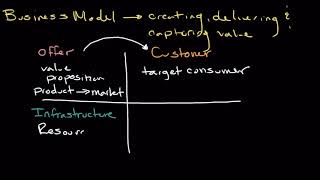 Business Model → creating, delivering &
capturing value
Offer
Customer
value
proposition
product → market
target consumer
Infrastructure
Resourr